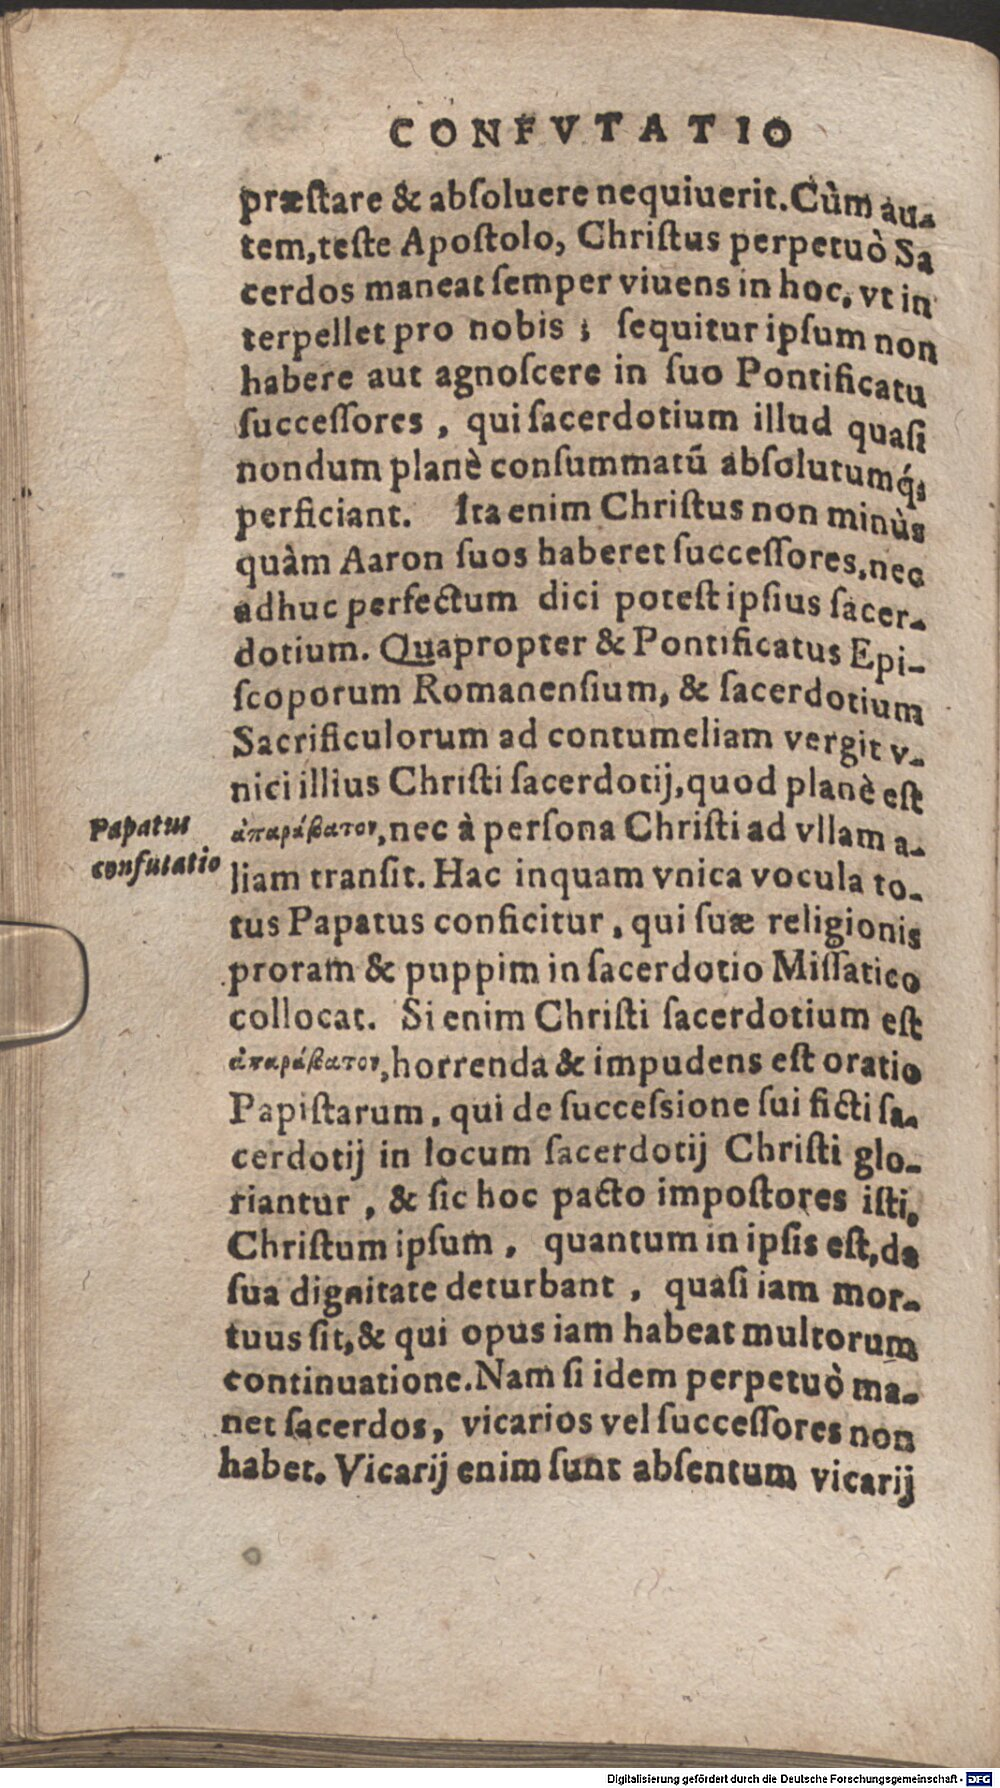 CONFVTATIO
præſtare & abſoluere nequiuerit. Cùm au-
tem, teſte Apoſtolo, Chriſtus perpetuò Sa
cerdos maneat ſemper viuens in hoc, vt in
terpellet pro nobis ; ſequitur ipſum non
habere aut agnoſcere in ſuo Pontificatu
ſucceſſores , qui ſacerdotium illud quaſi
nondum planè conſummatũ abſolutumq́;
perficiant. Ita enim Chriſtus non minùs
quàm Aaron ſuos haberet ſucceſſores, nec
adhuc perfectum dici poteſt ipſius ſacer-
dotium. Quapropter & Pontificatus Epi-
ſcoporum Romanenſium, & ſacerdotium
Sacrificulorum ad contumeliam vergit v-
nici illius Chriſti ſacerdotij, quod planè eſt
ἀπαράβατον, nec à perſona Chriſti ad vllam a-
liam tranſit. Hac inquam vnica vocula to-
tus Papatus conficitur , qui ſuæ religionis
proram & puppim in ſacerdotio Miſſatico
collocat. Si enim Chriſti ſacerdotium eſt
ἀπαράβατον, horrenda & impudens eſt oratio
Papiſtarum, qui de ſucceſsione ſui ficti ſa-
cerdotij in locum ſacerdotij Chriſti glo-
riantur , & ſic hoc pacto impoſtores iſti,
Chriſtum ipſum , quantum in ipſis eſt, de
ſua dignitate deturbant , quaſi iam mor-
tuus ſit, & qui opus iam habeat multorum
continuatione. Nam ſi idem perpetuò ma-
net ſacerdos, vicarios vel ſucceſſores non
habet. Vicarij enim ſunt abſentum vicarij
Papatus
confutatio
Digitalisierung gefördert durch die Deutsche Forschungsgemeinschaft - DFG